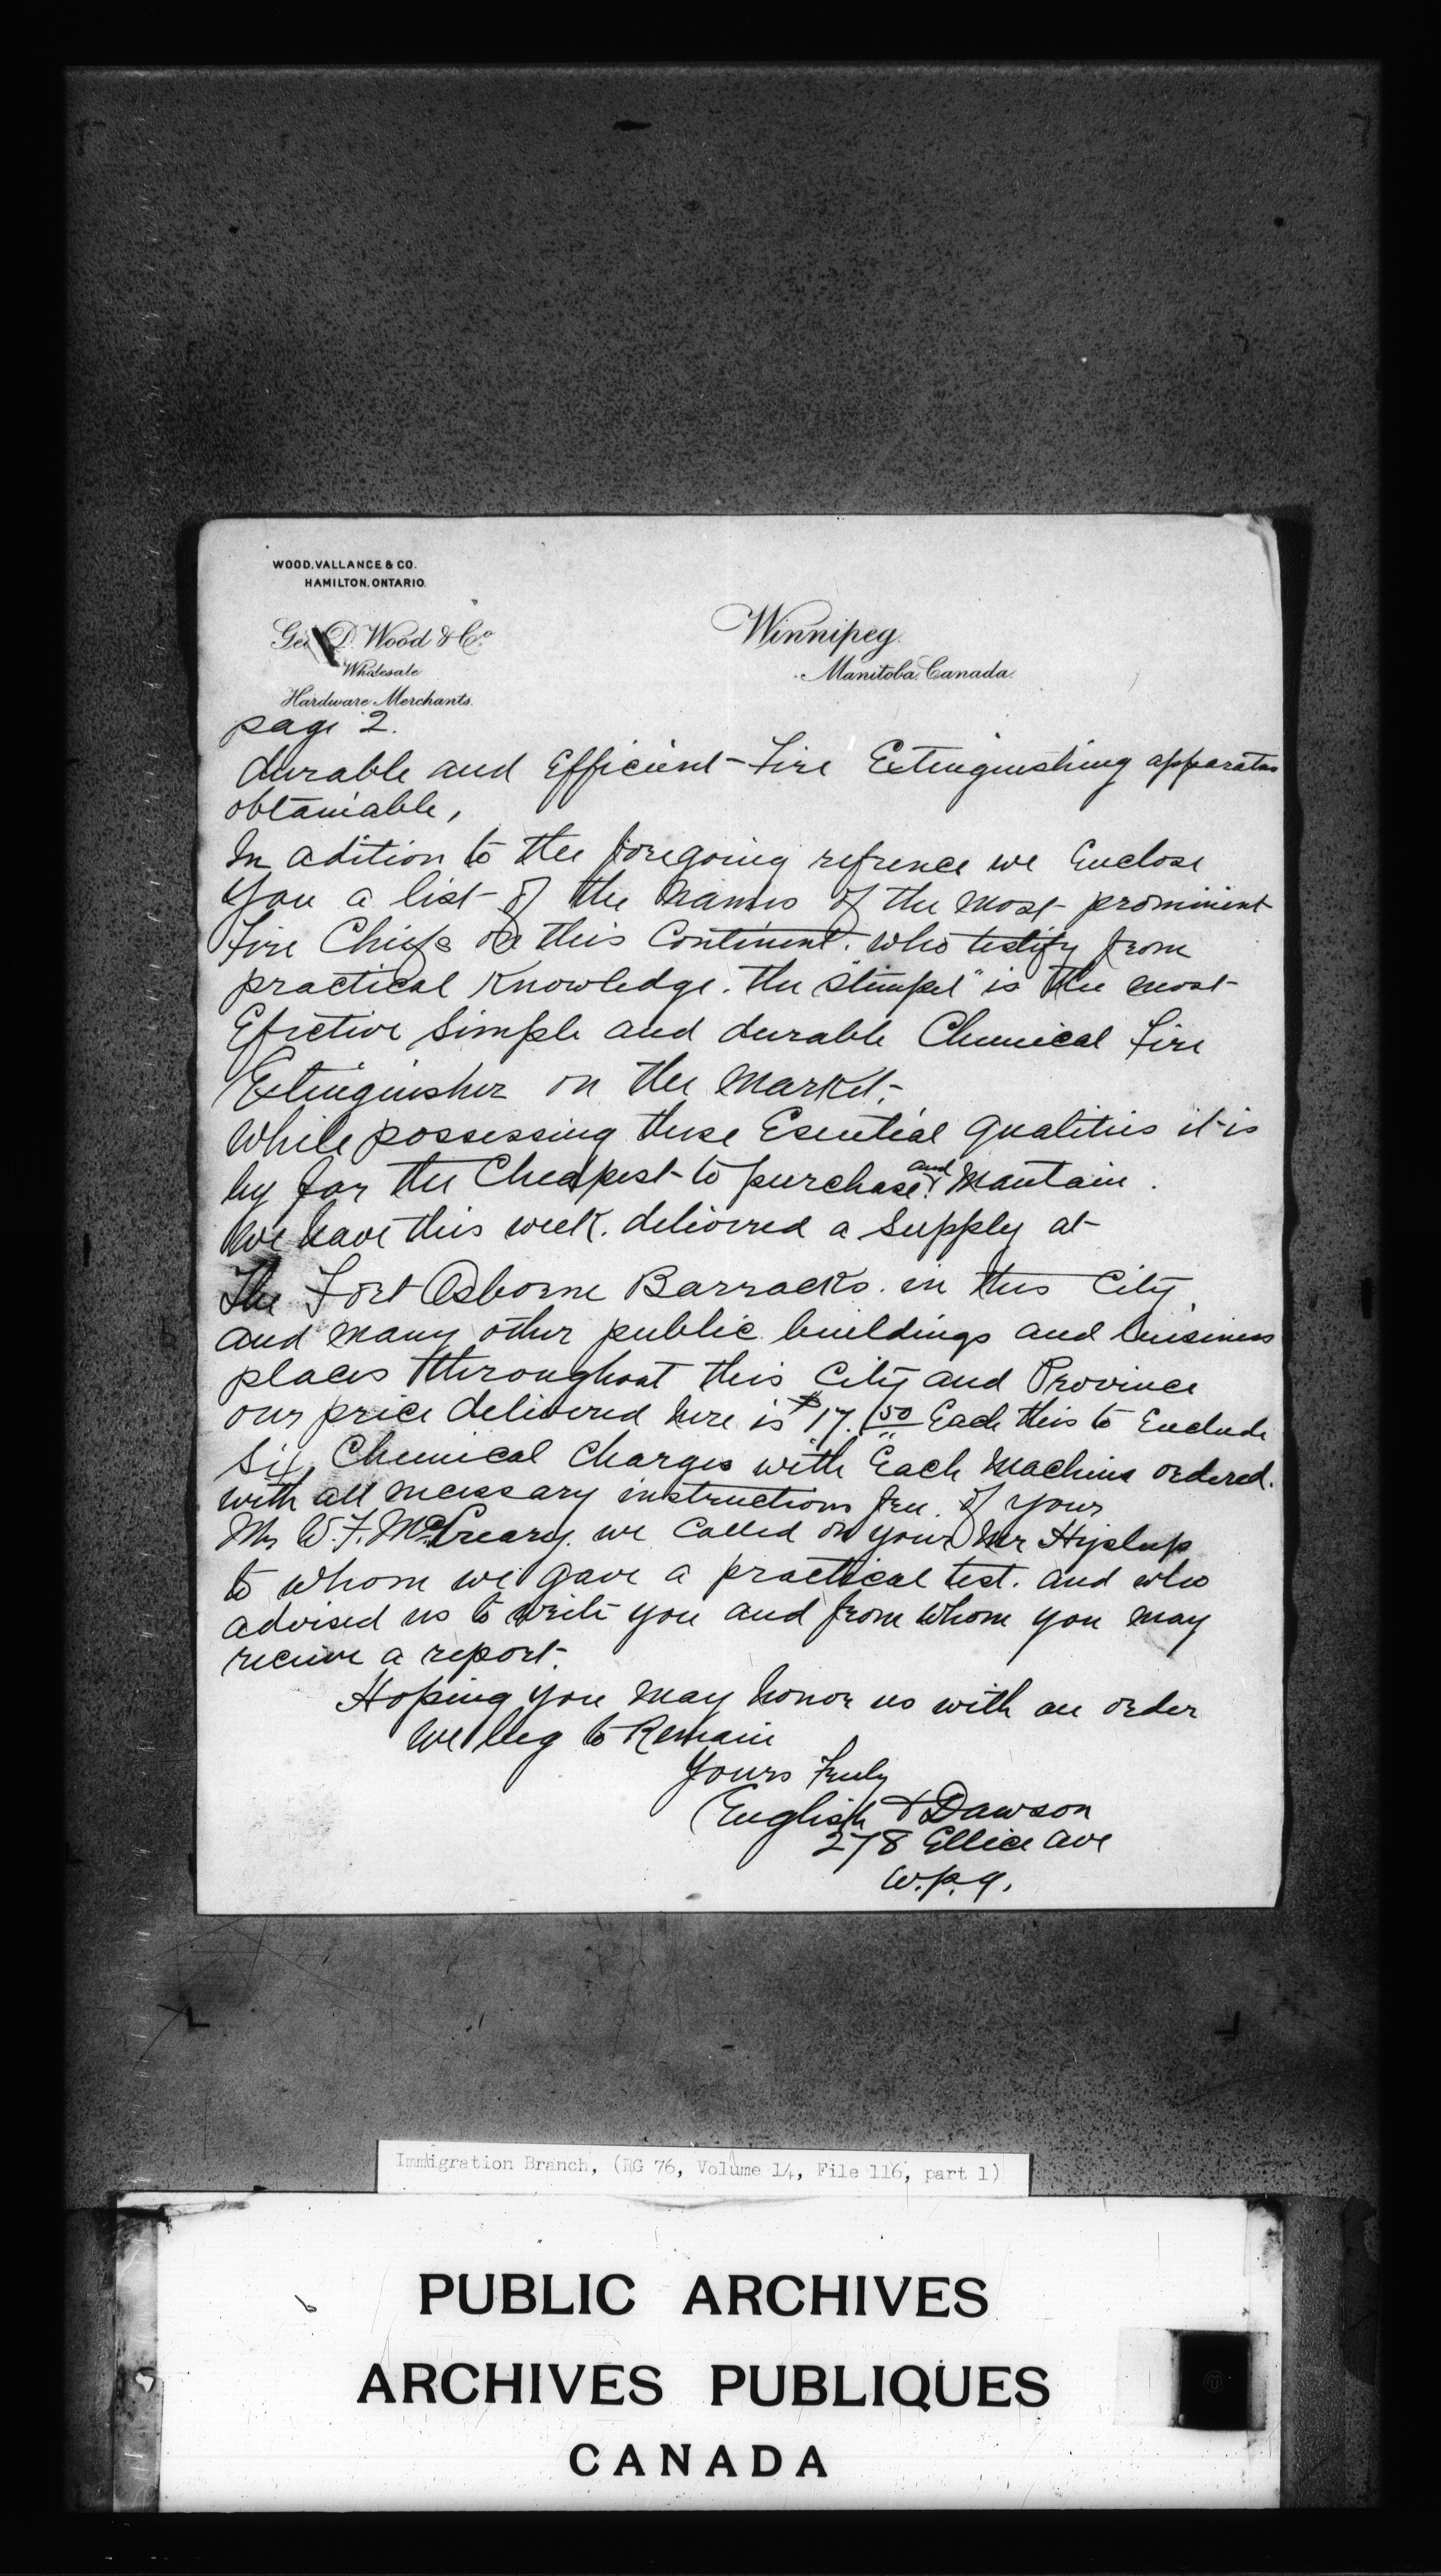 WOOD, VALLANCE & CO.
HAMILTON, ONTARIO.
Geo. D. Wood & Co.
Wholesale
Hardware Merchants.
Winnipeg,
Manitoba, Canada.
page 2.
durable and Efficient Fire Extinguishing apparatus
obtainable,
In adition to the foregoing refrence we Enclose
you a list of the names of the most prominent
Fire Chiefs on this Continent. who testify from
practical Knowledge. the "Stempel" is the most
Efective Simple and durable Chemical Fire
Extinguisher on the market.
While possessing these Esential qualities it is
by far the Cheapest to purchase and Mantain.
We have this week. delivered a Supply at
The Fort Osborne Barracks. in this City,
and many other public buildings and buisiness
places throughout this City and Province
our price delivered here is $17.50 Each this to Enclude
Six Chemical Charges with Each Machine ordered.
with all necessary instructions free. of your
Mr W. F. McCreary. we Called on your Mr Hyslup
to whom we gave a practical test. and who
advised us to write you and from whom you may
recieve a report.
Hoping you may honor us with an order
We beg to Remain
Yours Truly
English & Dawson
278 Ellice Ave
W.p.g.
Immigration Branch, (RG 76, Volume 14, File 116, part 1)
PUBLIC ARCHIVES
ARCHIVES PUBLIQUES
CANADA